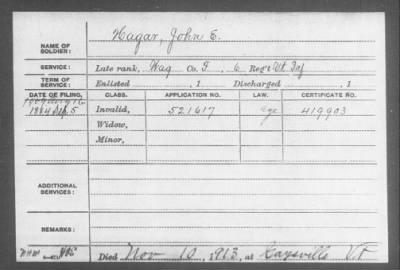 NAME OF SOLDIER: Hagar, John E.
SERVICE: Late rank, Wag Co. I, 6 Reg't Vt Inf
TERM OF SERVICE: Enlisted , 1 Discharged , 1
DATE OF FILING. CLASS. APPLICATION NO. LAW. CERTIFICATE NO.
1884 Sep 5 Invalid, 521617 419903
Widow,
Minor,
ADDITIONAL SERVICES:
REMARKS:
Died Nov 10, 1913, at Gaysville Vt